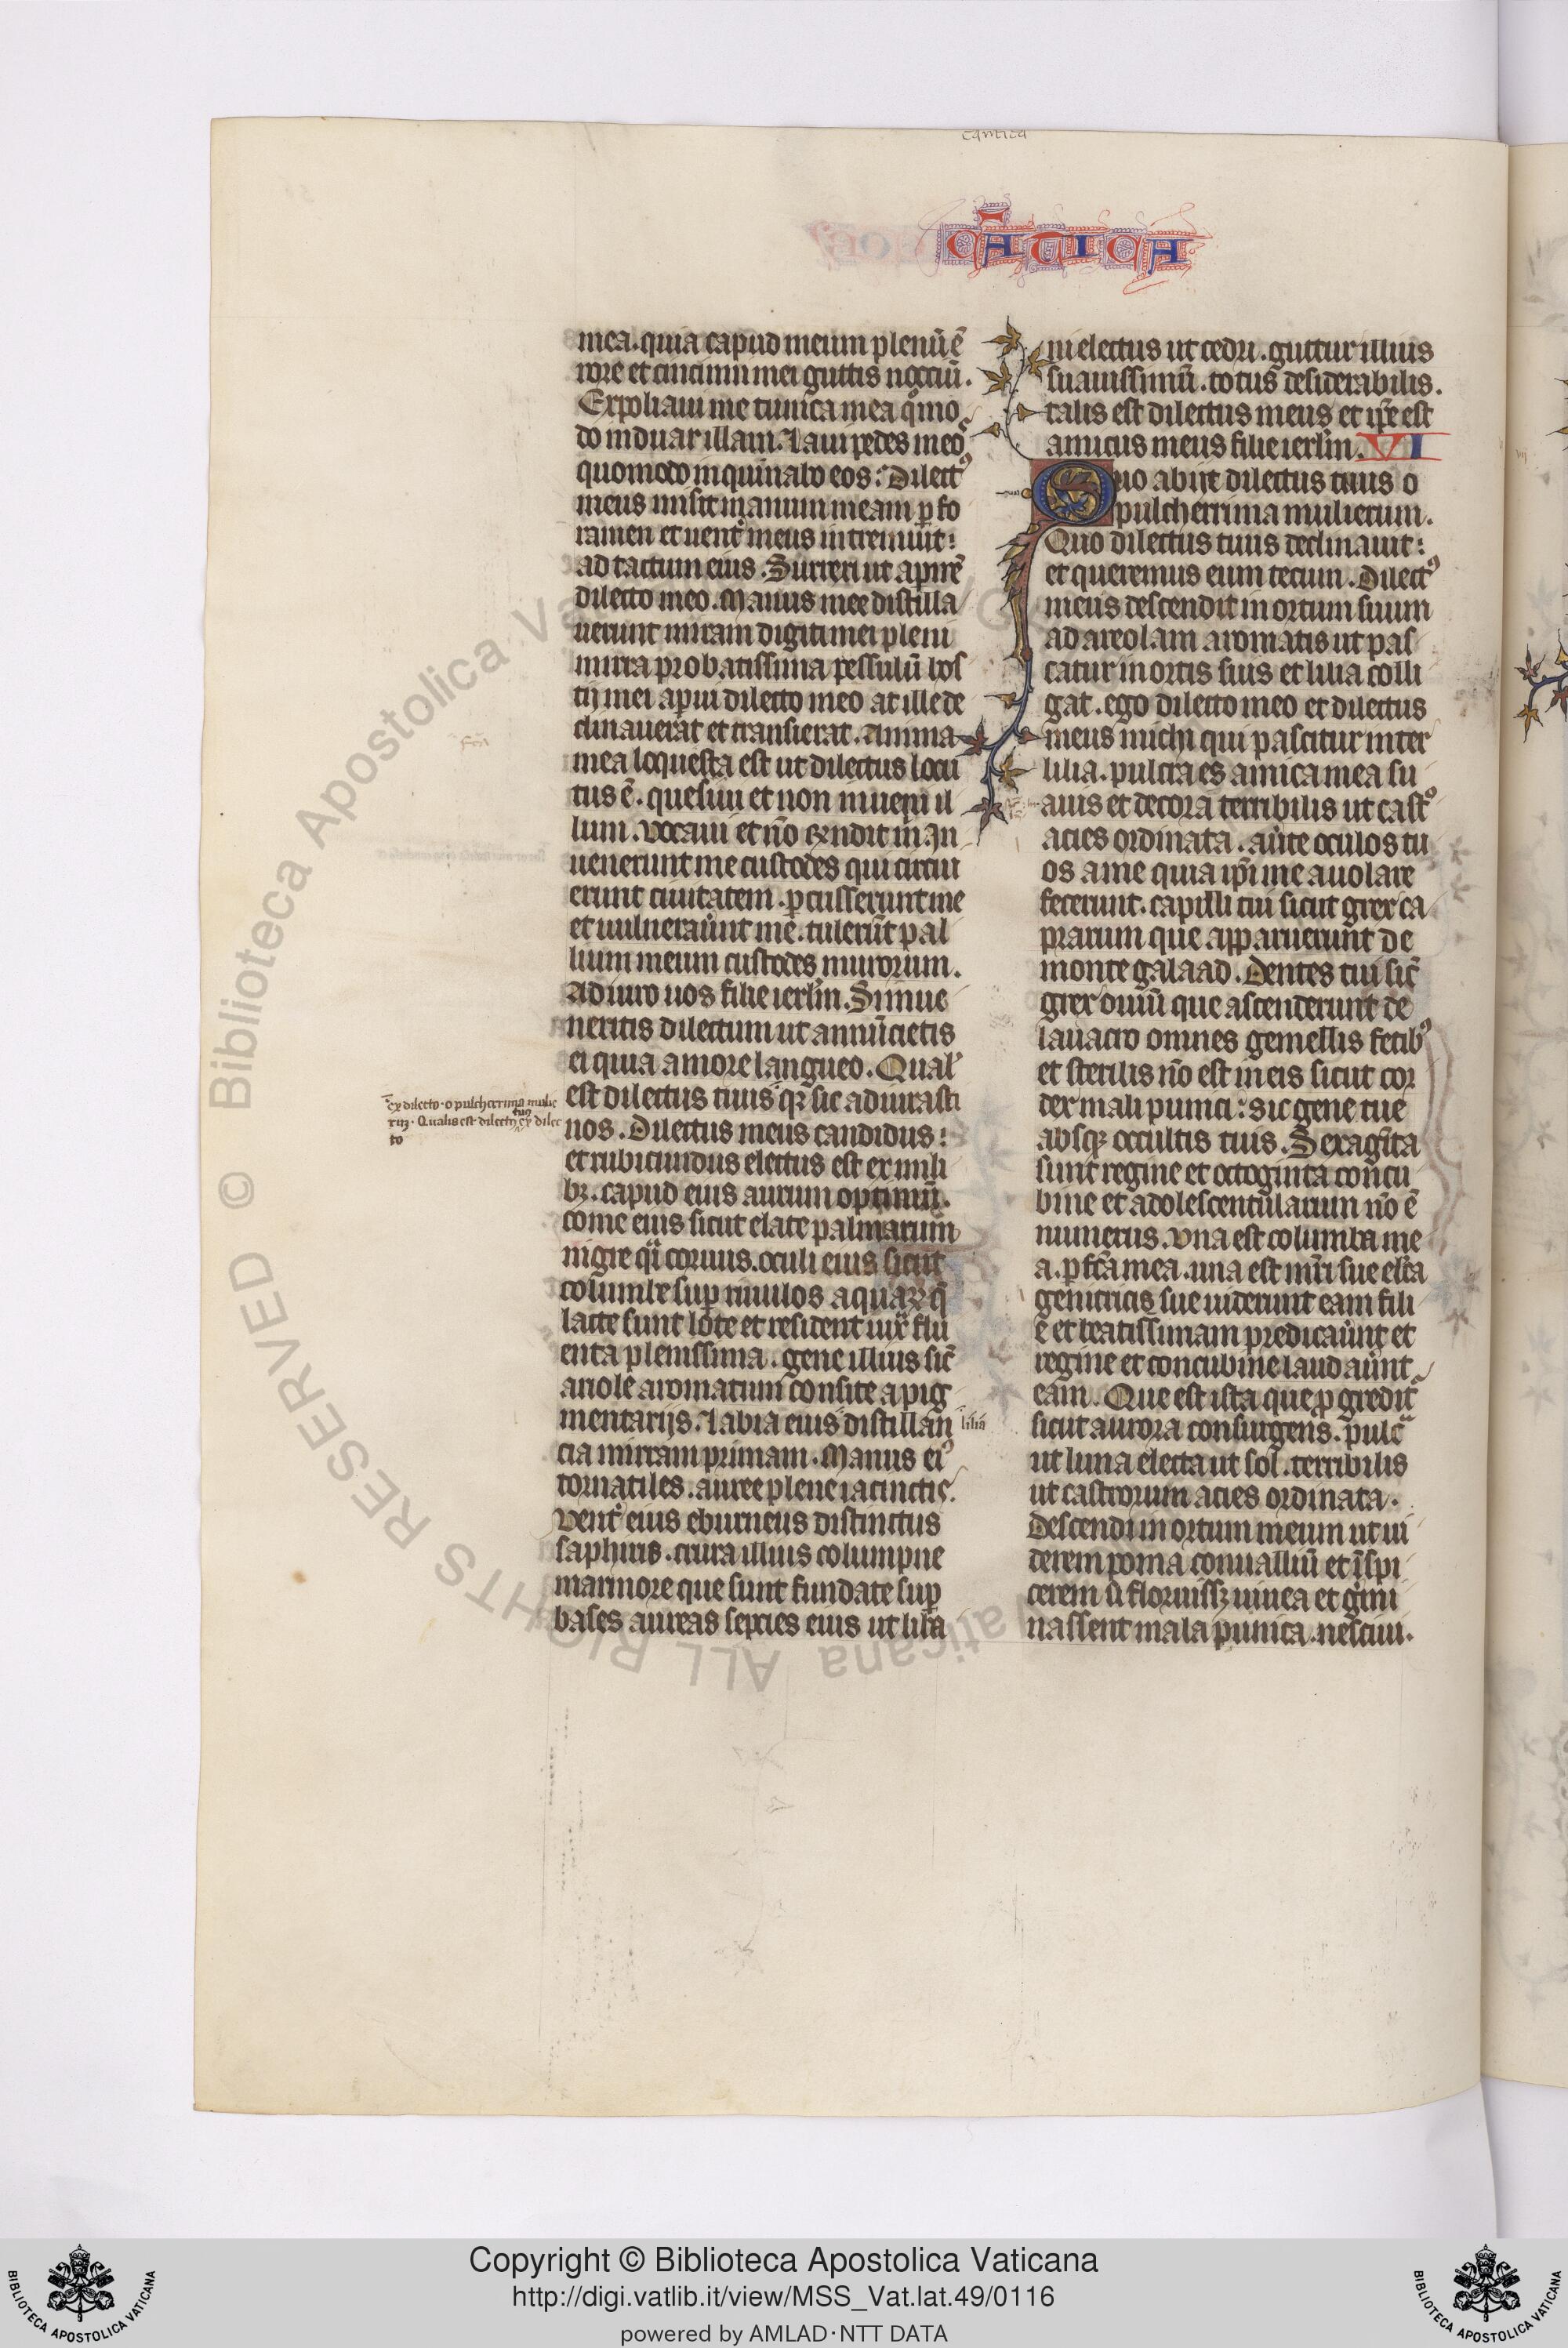 cantica
CÃTICA
mea. quia capud meum plenũ ẽ
rore et cincinni mei guttis noctiũ.
Expoliaui me tunica mea qͦmo
do induar illam. Laui pedes meoˢ
quomodo inquinabo eos: Dilectꝰ
meus misit manum meam ꝑ fo
ramen et uentʳ meus intremuit:
ad tactum eius. Surrexi ut apirẽ
dilecto meo. Manus mee distilla
uerunt mirram digiti mei pleni
mirra probatissima pessulũ hos
tij mei aperui dilecto meo at ille de
clinauerat et transierat. Anima
mea loquefta est ut dilectus locu
tus ẽ. quesiui et non inueni il
lum. vocaui et nõ rñdit m̃. In
uenerunt me custodes qui circui
erunt ciuitatem. ꝑcusserunt me
et uulnerauͬnt me. tulerũt pal
lium meum custodes murorum.
Adiuro uos filie ierl̃m. Si inue
neritis dilectum ut annũcietis
ei quia amore langueo. Qualˢ
est dilectus tuus qꝛ sic adiurasti
nos. Dilectus meus candidus:
et rubicundus electus est ex mili
bꝫ. capud eius aurum optimũ.
come eius sicut elate palmarum
nigre qͣi coruus. oculi eius sicut
columbe suꝑ riuulos aquaꝝ q̃
lacte sunt lote et resident iuxͣ flu
enta plenissima. gene illius sic̃
ariole aromatum consite a pig
mentarijs. Labia eius distillan
cia mirram primam. Manus eiꝰ
tornatiles. auree plene iacinctis.
Ventʳ eius eburneus distinctus
saphiris. crura illius columpne
marmoree que sunt fundate suꝑ
bases aureas species eius ut liba
ex dilecto. o pulcherrima mulie
rũ. Qualis est dilectꝰ tuꝰ ex dilec
to
lilia
VI
ni electus ut cedri. guttur illius
suauissimũ. totus desiderabilis.
talis est dilectus meus et ip̃e est
amicus meus filie ierl̃m.
Quo abijt dilectus tuus o
pulcherrima mulierum.
Quo dilectus tuus declinauit:
et queremus eum tecum. Dilectꝰ
meus descendit in ortum suum
ad areolam aromatis ut pas
catur in ortis suis et lilia colli
gat. ego dilecto meo et dilectus
meus michi qui pascitur inter
lilia. pulcra es amica mea su
auis et decora terribilis ut castͦ
acies ordinata. auͬte oculos tu
os a me quia ip̃i me auolare
fecerunt. capilli tui sicut grex ca
prarum que apparuerunt de
monte galaad. Dentes tui sic̃
grex ouiũ que ascenderunt de
lauacro omnes gemellis fetibꝰ
et sterilis nõ est in eis sicut cor
tex mali punici: sic gene tue
absqꝫ occultis tuis. Sexagĩta
sunt regine et octoginta concu
bine et adolescentularum nõ ẽ
numerus. vna est columba me
a. ꝑfc̃a mea. una est mr̃i sue elc̃a
genitricis sue uiderunt eam fili
e et beatissimam predicauͬnt et
regine et concubine laudauͬnt
eam. Que est ista que ꝓgreditʳ
sicut aurora consurgens. pulcͣ
ut luna electa ut sol. terribilis
ut castrorum acies ordinata.
Descendi in ortum meum ut ui
derem poma conualliũ et ĩspi
cerem si floruissꝫ uinea et gͤmi
nassent mala punica. nesciui.
Copyright © Biblioteca Apostolica Vaticana
http://digi.vatlib.it/view/MSS_Vat.lat.49/0116
powered by AMLAD·NTT DATA
BIBLIOTECA APOSTOLICA VATICANA
BIBLIOTECA APOSTOLICA VATICANA